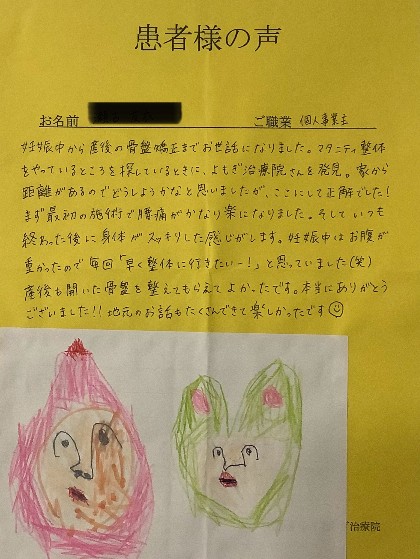 患者様の声
お名前 ご職業 個人事業主
妊娠中から産後の骨盤矯正までお世話になりました。マタニティ整体
をやっているところを探しているときに、よもぎ治療院さんを発見。家から
距離があるのでどうしようかなと思いましたが、ここにして正解でした!
まず最初の施術で腰痛がかなり楽になりました。そしていつも
終わった後に身体がスッキリした感じがします。妊娠中はお腹が
重かったので毎回「早く整体に行きたいー!」と思っていました(笑)
産後も開いた骨盤を整えてもらえてよかったです。本当にありがとう
ございました!!地元のお話もたくさんできて楽しかったです
治療院